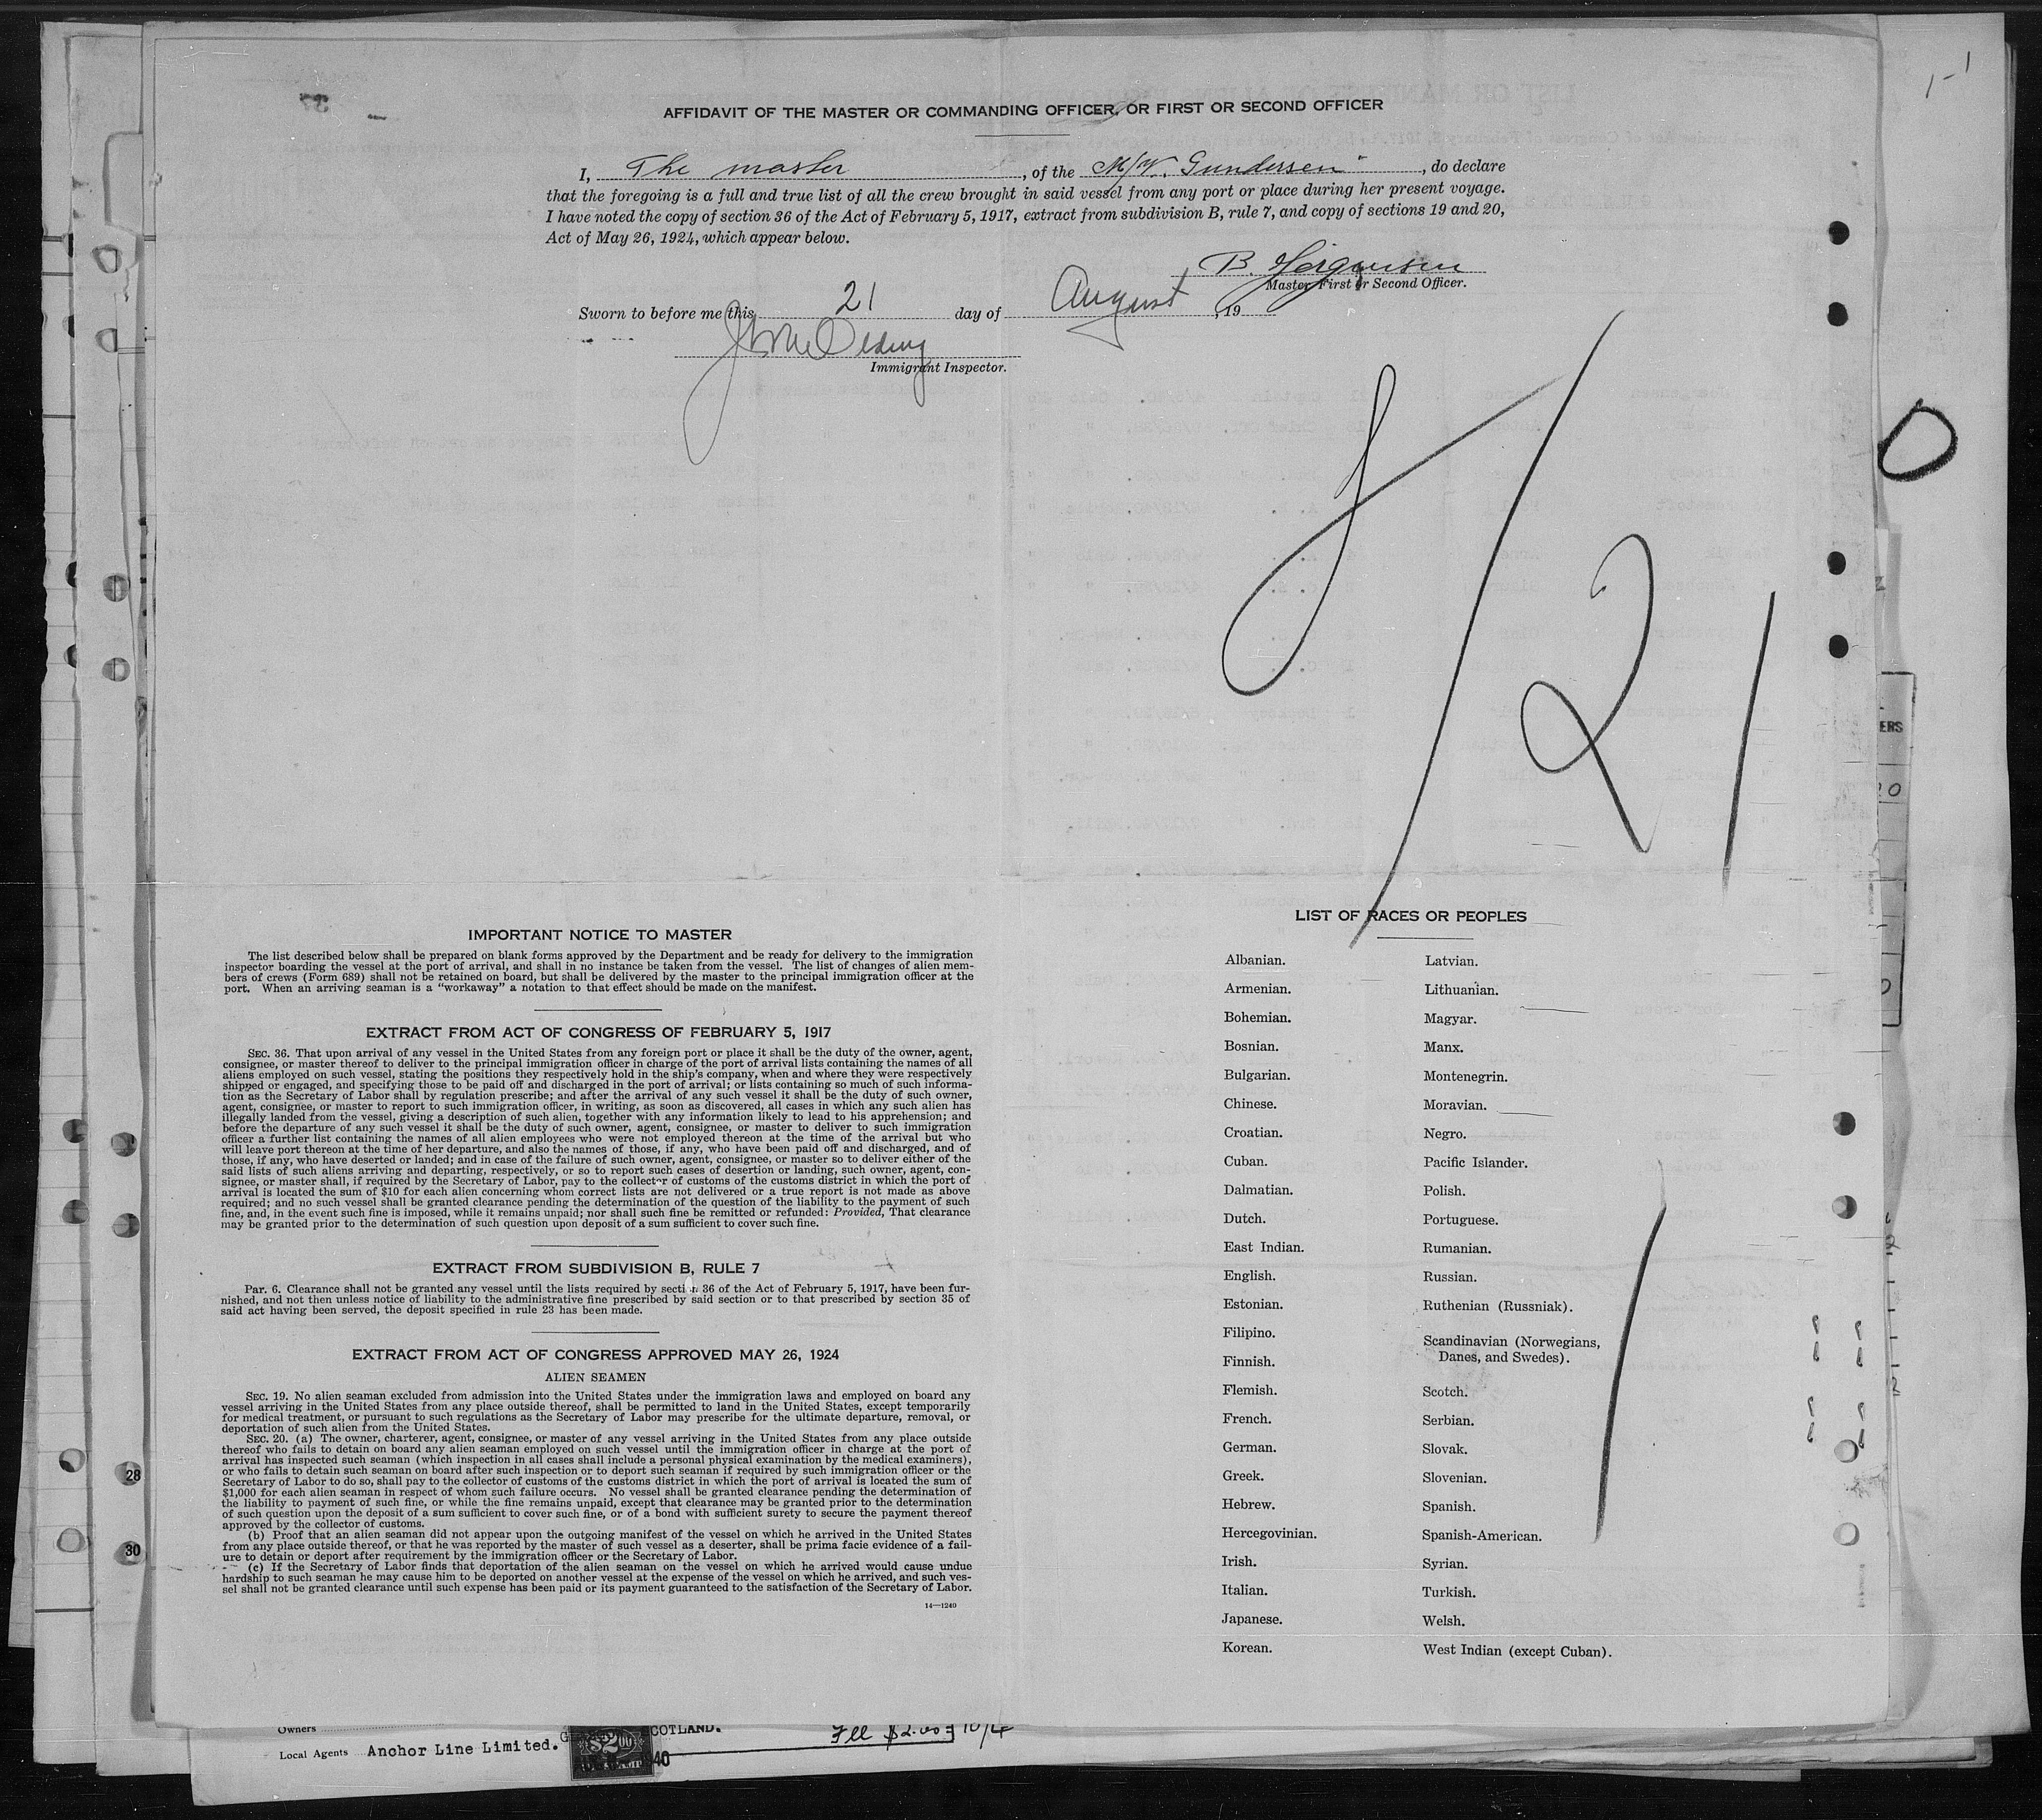 1-1
AFFIDAVIT OF THE MASTER OR COMMANDING OFFICER, OR FIRST OR SECOND OFFICER
I, The master, of the M/V. Gundersen, do declare
that the foregoing is a full and true list of all the crew brought in said vessel from any port or place during her present voyage.
I have noted the copy of section 36 of the Act of February 5, 1917, extract from subdivision B, rule 7, and copy of sections 19 and 20,
Act of May 26, 1924, which appear below.
B. Jörgensen
Master, First or Second Officer.
Sworn to before me this 21 day of August, 19
Immigrant Inspector.
8/21
IMPORTANT NOTICE TO MASTER
The list described below shall be prepared on blank forms approved by the Department and be ready for delivery to the immigration
inspector boarding the vessel at the port of arrival, and shall in no instance be taken from the vessel. The list of changes of alien mem-
bers of crews (Form 689) shall not be retained on board, but shall be delivered by the master to the principal immigration officer at the
port. When an arriving seaman is a "workaway" a notation to that effect should be made on the manifest.
EXTRACT FROM ACT OF CONGRESS OF FEBRUARY 5, 1917
SEC. 36. That upon arrival of any vessel in the United States from any foreign port or place it shall be the duty of the owner, agent,
consignee, or master thereof to deliver to the principal immigration officer in charge of the port of arrival lists containing the names of all
aliens employed on such vessel, stating the positions they respectively hold in the ship's company, when and where they were respectively
shipped or engaged, and specifying those to be paid off and discharged in the port of arrival; or lists containing so much of such informa-
tion as the Secretary of Labor shall by regulation prescribe; and after the arrival of any such vessel it shall be the duty of such owner,
agent, consignee, or master to report to such immigration officer, in writing, as soon as discovered, all cases in which any such alien has
illegally landed from the vessel, giving a description of such alien, together with any information likely to lead to his apprehension; and
before the departure of any such vessel it shall be the duty of such owner, agent, consignee, or master to deliver to such immigration
officer a further list containing the names of all alien employees who were not employed thereon at the time of the arrival but who
will leave port thereon at the time of her departure, and also the names of those, if any, who have been paid off and discharged, and of
those, if any, who have deserted or landed; and in case of the failure of such owner, agent, consignee, or master so to deliver either of the
said lists of such aliens arriving and departing, respectively, or so to report such cases of desertion or landing, such owner, agent, con-
signee, or master shall, if required by the Secretary of Labor, pay to the collector of customs of the customs district in which the port of
arrival is located the sum of $10 for each alien concerning whom correct lists are not delivered or a true report is not made as above
required; and no such vessel shall be granted clearance pending the determination of the question of the liability to the payment of such
fine, and, in the event such fine is imposed, while it remains unpaid; nor shall such fine be remitted or refunded: Provided, That clearance
may be granted prior to the determination of such question upon deposit of a sum sufficient to cover such fine.
EXTRACT FROM SUBDIVISION B, RULE 7
Par. 6. Clearance shall not be granted any vessel until the lists required by section 36 of the Act of February 5, 1917, have been fur-
nished, and not then unless notice of liability to the administrative fine prescribed by said section or to that prescribed by section 35 of
said act having been served, the deposit specified in rule 23 has been made.
EXTRACT FROM ACT OF CONGRESS APPROVED MAY 26, 1924
ALIEN SEAMEN
SEC. 19. No alien seaman excluded from admission into the United States under the immigration laws and employed on board any
vessel arriving in the United States from any place outside thereof, shall be permitted to land in the United States, except temporarily
for medical treatment, or pursuant to such regulations as the Secretary of Labor may prescribe for the ultimate departure, removal, or
deportation of such alien from the United States.
SEC. 20. (a) The owner, charterer, agent, consignee, or master of any vessel arriving in the United States from any place outside
thereof who fails to detain on board any alien seaman employed on such vessel until the immigration officer in charge at the port of
arrival has inspected such seaman (which inspection in all cases shall include a personal physical examination by the medical examiners),
or who fails to detain such seaman on board after such inspection or to deport such seaman if required by such immigration officer or the
Secretary of Labor to do so, shall pay to the collector of customs of the customs district in which the port of arrival is located the sum of
$1,000 for each alien seaman in respect of whom such failure occurs. No vessel shall be granted clearance pending the determination of
the liability to payment of such fine, or while the fine remains unpaid, except that clearance may be granted prior to the determination
of such question upon the deposit of a sum sufficient to cover such fine, or of a bond with sufficient surety to secure the payment thereof
approved by the collector of customs.
(b) Proof that an alien seaman did not appear upon the outgoing manifest of the vessel on which he arrived in the United States
from any place outside thereof, or that he was reported by the master of such vessel as a deserter, shall be prima facie evidence of a fail-
ure to detain or deport after requirement by the immigration officer or the Secretary of Labor.
(c) If the Secretary of Labor finds that deportation of the alien seaman on the vessel on which he arrived would cause undue
hardship to such seaman he may cause him to be deported on another vessel at the expense of the vessel on which he arrived, and such ves-
sel shall not be granted clearance until such expense has been paid or its payment guaranteed to the satisfaction of the Secretary of Labor.
14—1240
LIST OF RACES OR PEOPLES
Albanian.
Armenian.
Bohemian.
Bosnian.
Bulgarian.
Chinese.
Croatian.
Cuban.
Dalmatian.
Dutch.
East Indian.
English.
Estonian.
Filipino.
Finnish.
Flemish.
French.
German.
Greek.
Hebrew.
Hercegovinian.
Irish.
Italian.
Japanese.
Korean.
Latvian.
Lithuanian.
Magyar.
Manx.
Montenegrin.
Moravian.
Negro.
Pacific Islander.
Polish.
Portuguese.
Rumanian.
Russian.
Ruthenian (Russniak).
Scandinavian (Norwegians,
Danes, and Swedes).
Scotch.
Serbian.
Slovak.
Slovenian.
Spanish.
Spanish-American.
Syrian.
Turkish.
Welsh.
West Indian (except Cuban).
28
30
ERS
Owners
COTLAND.
Local Agents Anchor Line Limited.
$2.00
40